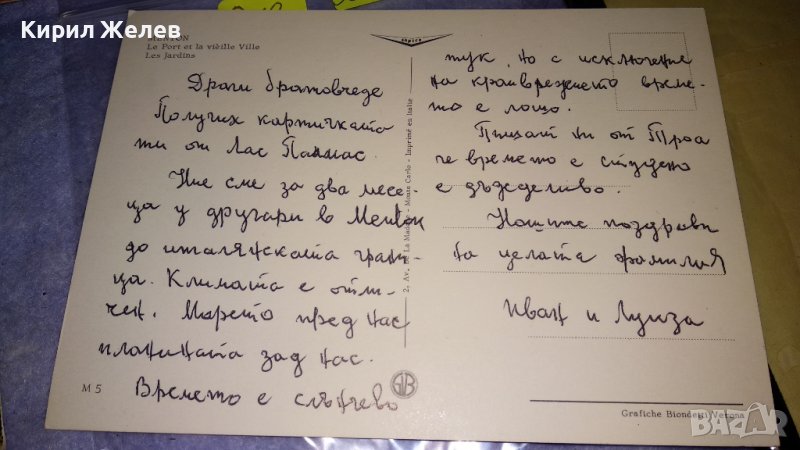 Кирил Желев
MENTON
Le Port et la vieille Ville
Les Jardins
Драги братовчеде
Получих картичката
ти от Лас Палмас.
Ние сме за два месе-
ца у другари в Ментон
до италянската грани-
ца. Климата е отли-
чен. Морето пред нас
планината зад нас.
Времето е слънчево
M 5
2, Av. de La Madone - Monte Carlo - Imprimé en Italie
тук, но с исключение
на крайбрежието време-
то е лошо.
Пишат ни от Троа
че времето е студено
е дъжделиво.
Нашите поздрави
на целата фамилия
Иван и Луиза
Grafiche Biondetti Verona
BAZAR
bg